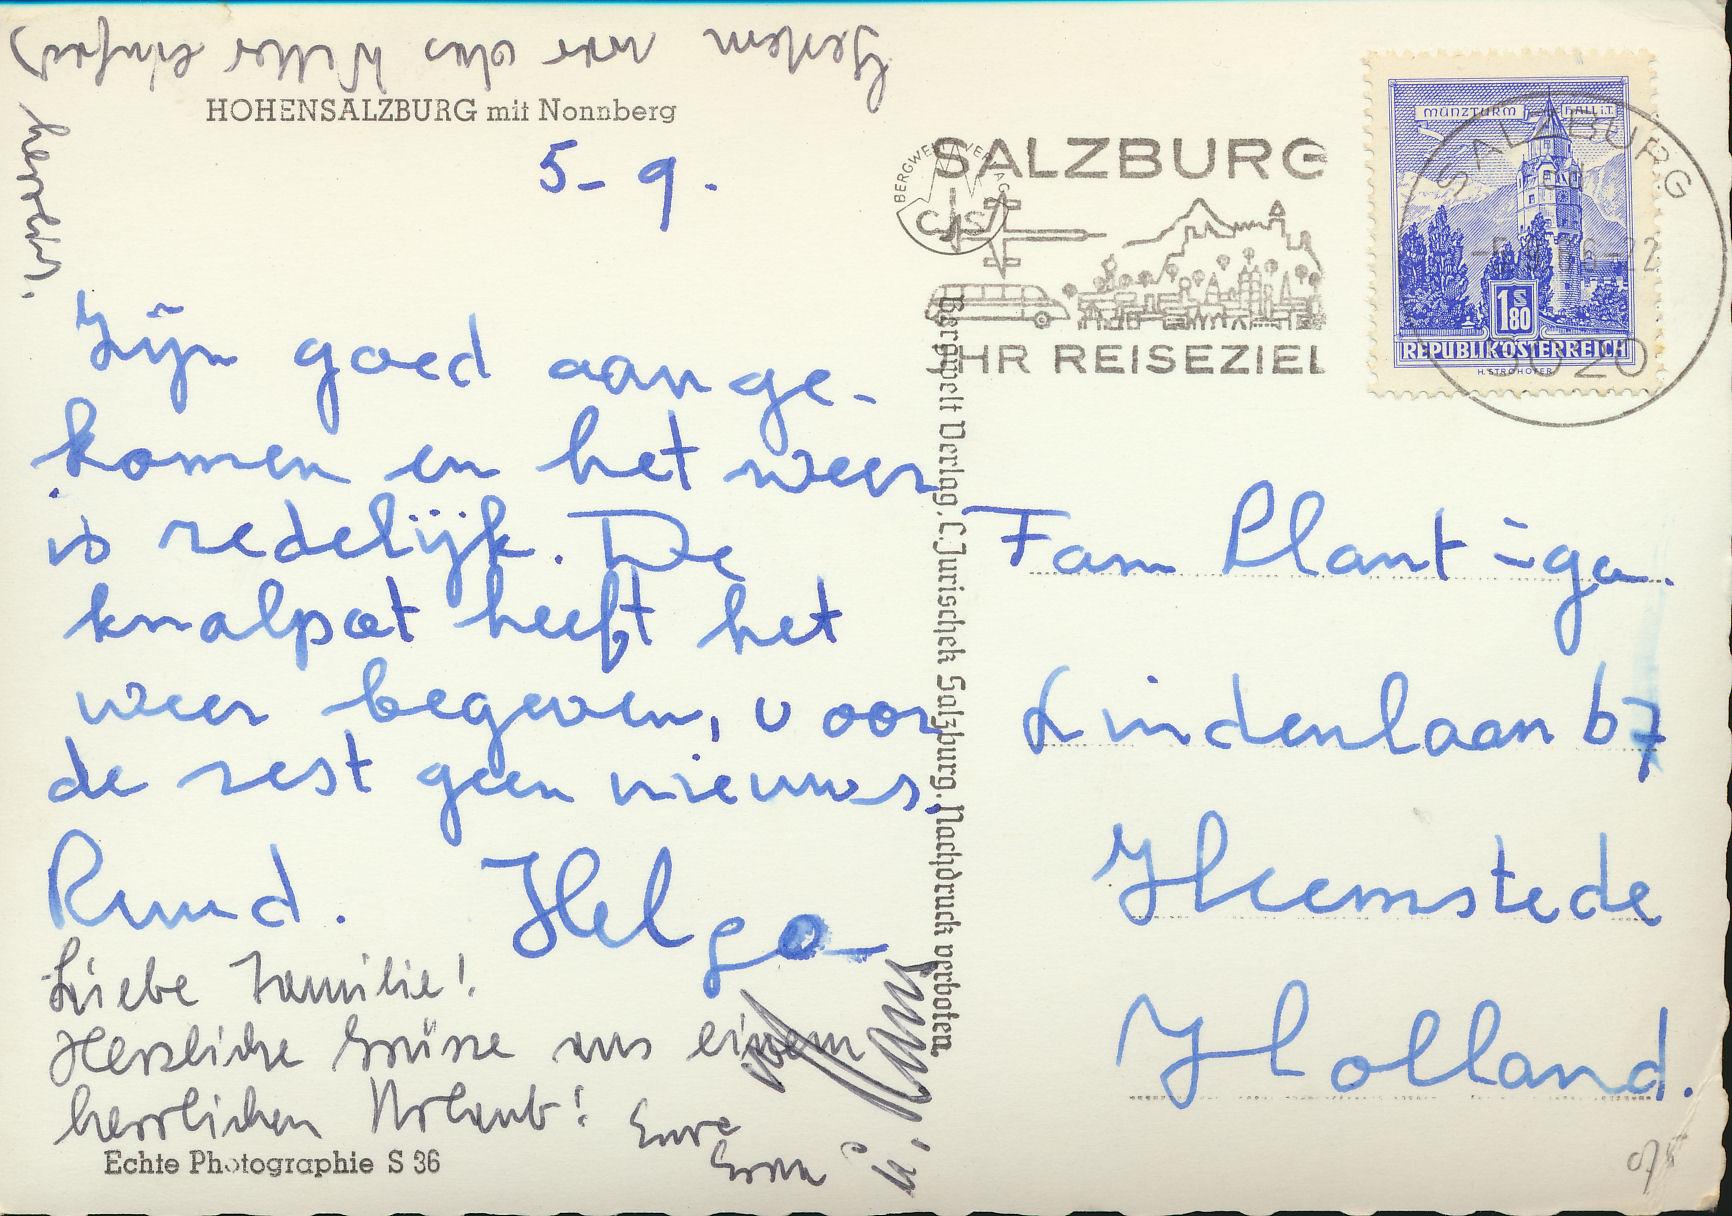 Gestern war das Wetter einfach
herrlich.
HOHENSALZBURG mit Nonnberg
5-9.
Zijn goed aange-
komen en het weer
is redelijk. De
knalpot heeft het
weer begeven, voor
de rest geen nieuws.
Ruud. Helga
Liebe Familie!
Herzliche Grüsse aus einem
herrlichen Urlaub!
Eure
u. Hans
Echte Photographie S 36
BERGWELT VERLAG
CJS
Bergwelt Verlag, C. Jurischek Salzburg. Nachdruck verboten.
SALZBURG
IHR REISEZIEL
MÜNZTURM HALL i.T.
1 S 80
REPUBLIK ÖSTERREICH
H. STROHOFER
SALZBURG
5020
Fam Plantinga.
Lindenlaan 67
Heemstede
Holland.